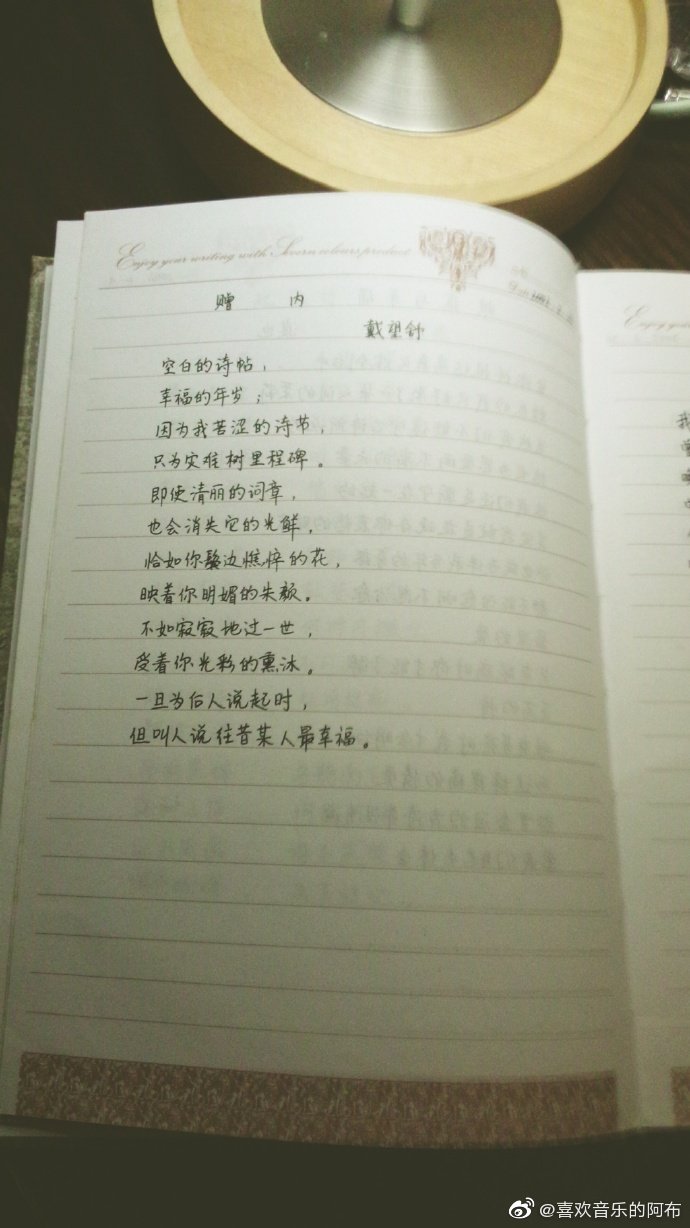 Enjoy your writing with Seven colours product
赠 内
戴望舒
空白的诗帖，
幸福的年岁；
因为我苦涩的诗节，
只为灾难树里程碑。
即使清丽的词章，
也会消失它的光鲜，
恰如你鬓边憔悴的花，
映着你明媚的朱颜。
不如寂寂地过一世，
受着你光彩的熏沐。
一旦为后人说起时，
但叫人说往昔某人最幸福。
Enjoy you
@喜欢音乐的阿布